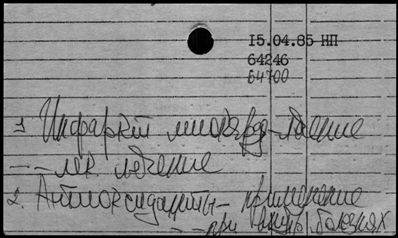 15.04.85 НП
64246
64700
1 Инфаркт миокарда - лечение
- - лек. лечение
2. Антиоксиданты - применение
- - при болезнях